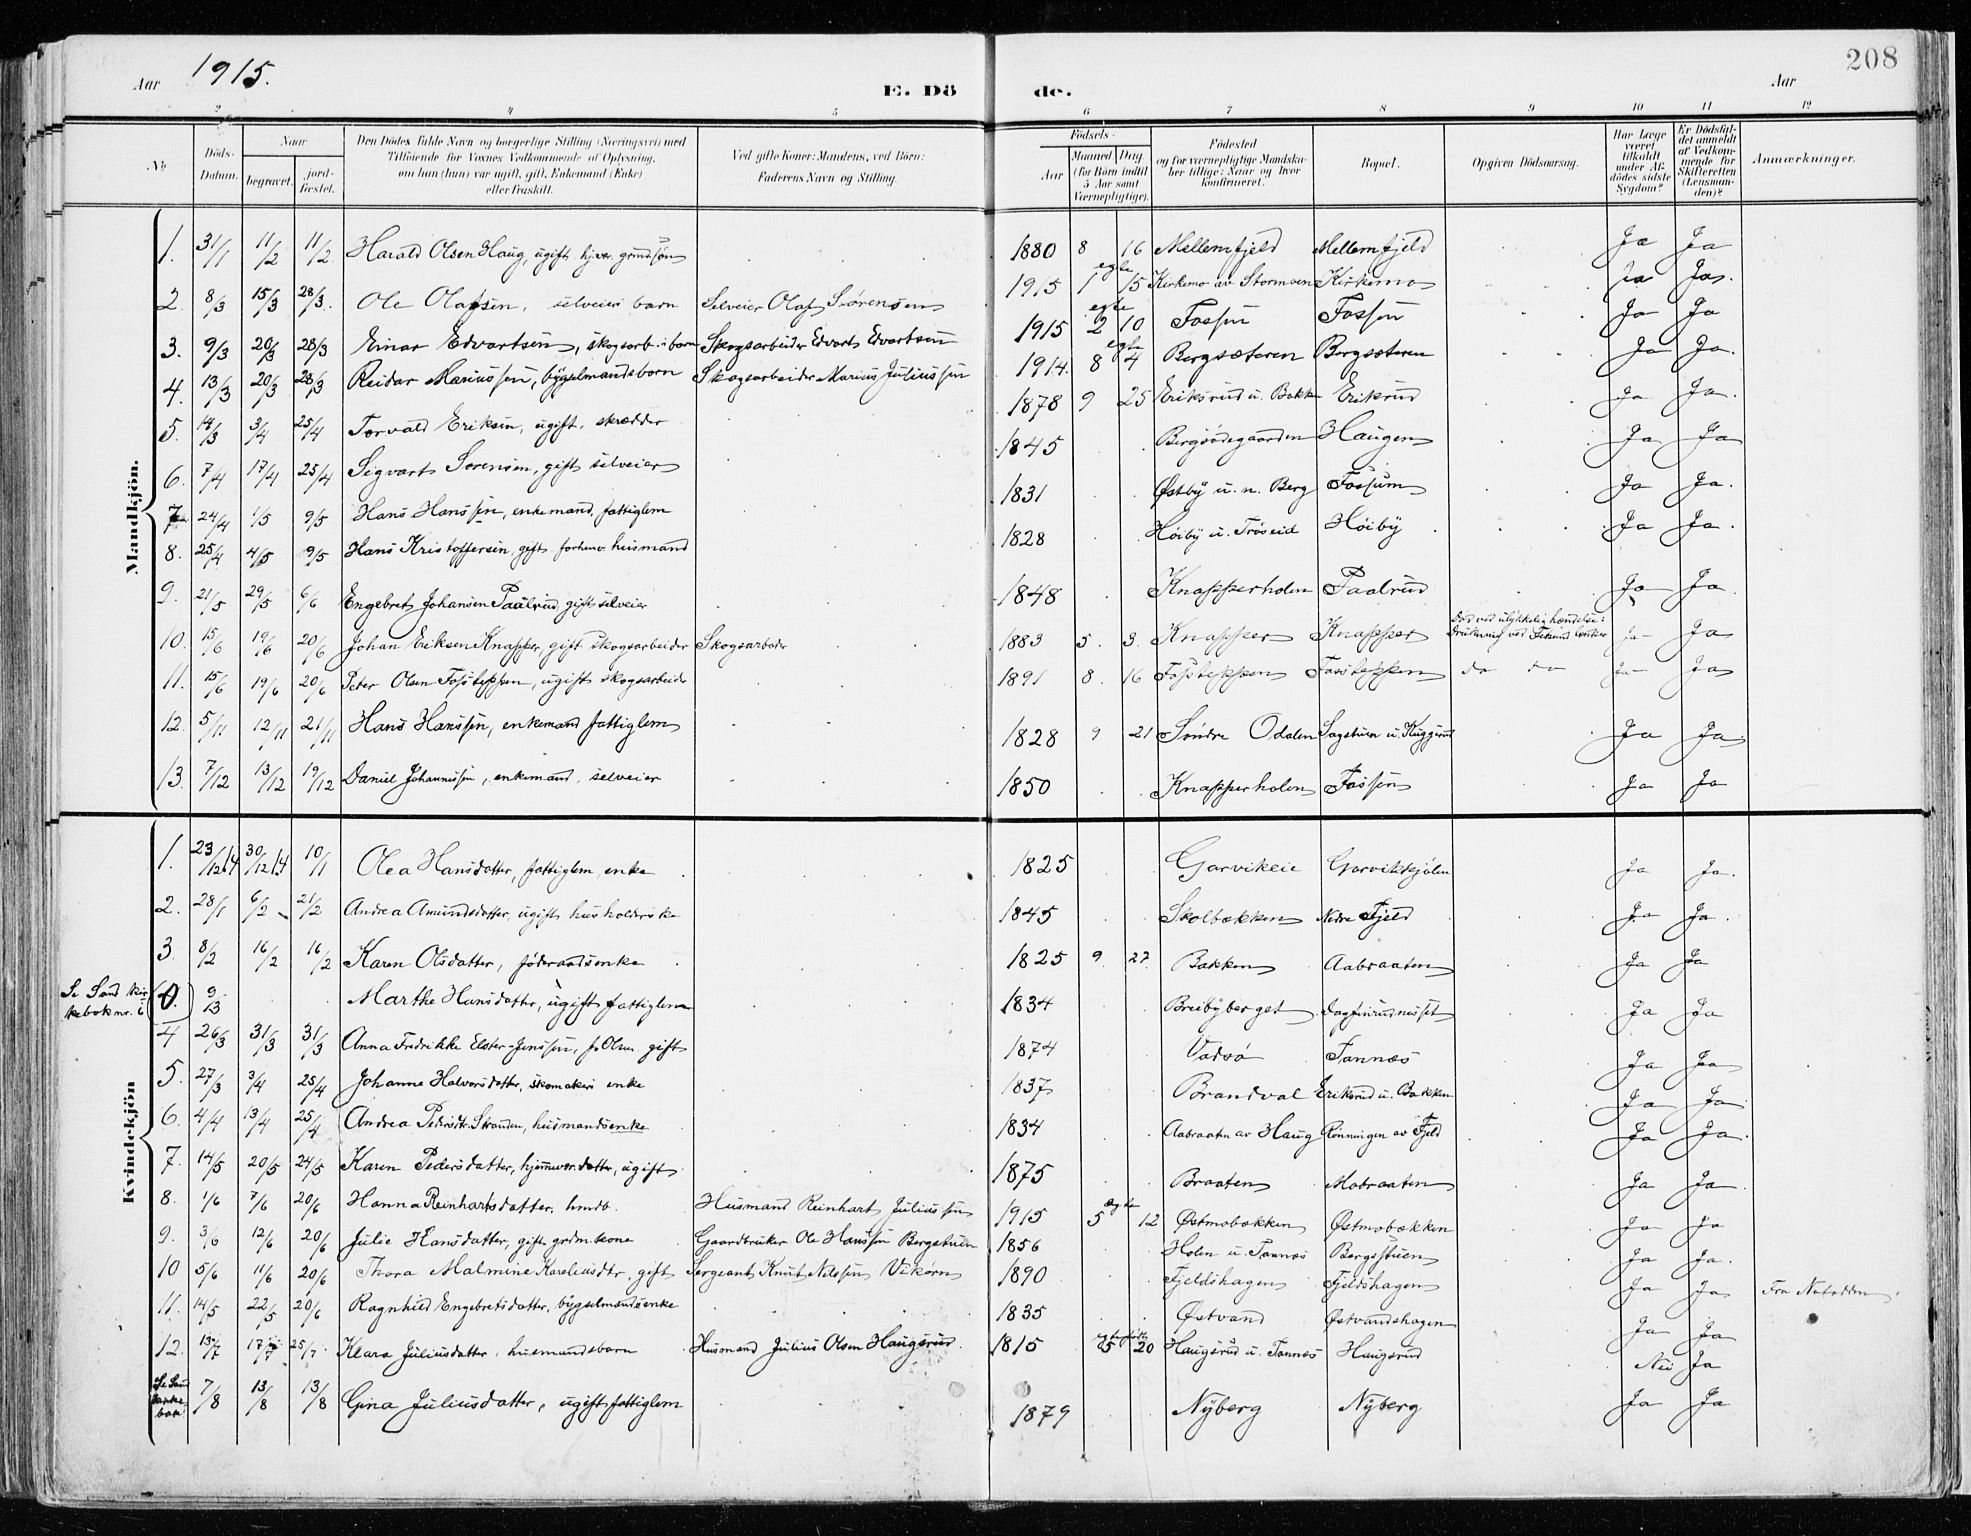 Aar 1915. E. Dö de. Aar 208
2 4 5 6 7 8 9 10 11 12
No
Döds-Datum.
Naar
begravet.
jord-fæstet.
Den Dödes fulde Navn og borgerlige Stilling (Næringsvei) med
Tilföiende for Voxnes Vedkommende af Oplysning,
om han (hun) var ugift, gift, Enkemand (Enke)
eller fraskilt.
Ved gifte Koner: Mandens, ved Börn:
Faderens Navn og Stilling.
Födsels-
Aar
Maaned Dag.
(for Börn indtil
5 Aar samt
Værnepligtige).
Födested
og for værnepligtige Mandska-
ber tillige: Naar og hvor
konfirmeret.
Bopæl.
Opgiven Dödsaarsag.
Har Læge
været
tilkaldt
under Af-
dödes sidste
Sygdom?
Er Dödsfal-
det anmeldt
af Vedkom-
mende for
Skifteretten
(Lensman-
den)?
Anmærkninger.
Mandkjön.
1. 31/1 11/2 11/2 Harald Olsen Haug, ugift 1880 8 16 Mellemfjeld Mellemfjeld Ja Ja
2. 8/3 15/3 28/3. Ole Olafsen, selveiers barn Selveier Olaf Sørensen 1915 egte 1 15 Kirkemo av Stormoen Kirkemo Ja Ja.
3. 9/3 20/3 28/3 Einar Edvartsen, skogsarb. barn Skogsarbeider Edvart Edvartsen 1915 egte 2 10 Fossen Fossen Ja Ja
4. 13/3 20/3 28/3 Reidar Mariussen, bygselmandsbarn Skogsarbeider Marius Juliussen 1914. egte 8 4 Bergsæteren Bergsæteren Ja Ja.
5. 14/3 3/4 25/4 Torvald Eriksen, ugift, skrædder 1878 9 25 Eriksrud u. Bakke Eriksrud Ja Ja.
6. 7/4 17/4 25/4 Sigvart Sørensen, gift selveier 1845 Bergsødegaarden Haugen Ja Ja
7. 24/4 1/5 9/5 Hans Hanssen, enkemand, fattiglem 1831 Østby u. n. Berg Fossum Ja Ja.
8. 25/4 4/5 9/5 Hans Kristoffersen, gift forhenv. husmand 1828 Høiby u. Trøseid Høiby Ja Ja.
9. 21/5 29/5 6/6 Engebret Johansen Paalrud, gift selveier 1848 Knapperholen Paalrud Ja Ja
10. 15/6 19/6 20/6 Johan Eriksen Knapper, gift skogsarbeider Skogsarbeider 1883 5. 3. Knapper Knapper Død ved ulykkelig hændelse: Drukning ved Ja
11. 15/6 19/6 20/6 Peter Olsen Fossteppen, ugift skogsarbeider 1891 8. 16 Fossteppen Fossteppen do do Ja
12. 5/11 12/11 21/11 Hans Hanssen, enkemand fattiglem 1828 9 21 Søndre Odalen Sagstuen u. Kuggerud Ja Ja
13. 7/12 13/12 19/12 Daniel Johannessen, enkemand, selveier 1850 Knapperholen Fossen Ja Ja
Kvindekjön
1. 23/12 14 30/12 14 10/1 Olea Hansdatter, fattiglem, enke 1825 Garvikeie Garvikkjølen Ja Ja.
2. 28/1 6/2 21/2 Andrea Amundsdatter, ugift husholderske 1845 Skolbækken Nedre Fjeld Ja Ja.
3. 8/2 16/2 16/2 Karen Olsdatter, føderaadsenke 1825 9. 27. Bakken Aabraaten Ja Ja
Se Sand kir-
kebok nr. 6 0. 9/3 Marthe Hansdatter, ugift fattiglem 1834 Breibyberget Ja Ja
4 26/3 31/3 31/3 Anna Fredrikke Elster-Jenssen, f. Olsen gift 1874 Vadsø Tannæs Ja Ja
5. 27/3 3/4 25/4 Johanne Halvorsdatter, skomakers enke 1837 Brandval Eriksrud u. Bakken Ja Ja
6. 4/4 13/4 25/4 Andrea Pedersdtr. Stranden, husmandsenke 1834 Aabraaten av Haug Rønningen av Fjeld Ja Ja.
7. 14/5 20/5 24/5 Karen Pedersdatter, hjemmev. datter, ugift 1875 Braaten Mobraaten Ja Ja.
8. 1/6 7/6 20/6 Hanna Reinhartsdatter, hmdb. Husmand Reinhart Juliussen 1915 ægte 5 12 Østmobækken Østmobækken Ja Ja
9. 3/6 12/6 20/6 Julie Hansdatter, gift, grdm.kone Gaardbruker Ole Hanssen Bergstuen 1856 Holen u. Tannæs Bergsstuen Ja Ja.
10 5/6 11/6 20/6 Thora Malmine Kareliusdtr. gift Sergeant Knut Nilssen Vikørn 1890 Fjeldshagen Fjeldshagen Ja Ja Fra Notodden.
11. 14/5 22/5 20/6 Ragnhild Engebretsdatter, bygselmandsenke 1835 Østvand Østvandshagen Ja Ja
12. 13/7 17/7 25/7 Klara Juliusdatter, husmandsbarn Husmand Julius Olsen Haugsrud 1815 25 20 Haugsrud u. Tannæs Haugsrud Nei Ja
Se Sand
kirke-
bok! 7/8 13/8 13/8 Gina Juliusdatter, ugift fattiglem 1879 Nyberg Nyberg Ja Ja